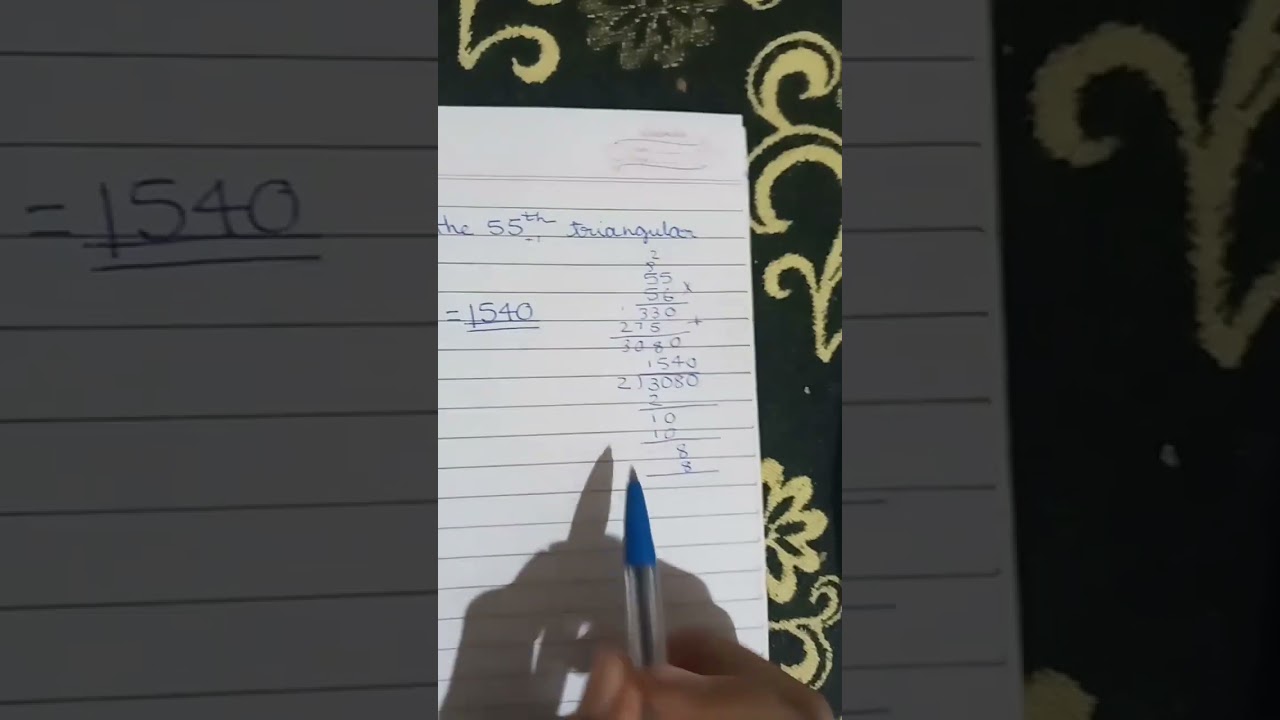 = 1540
the 55th triangular
2
55
56 x
= 1540
330
275 +
3080
1540
2)3080
2
10
10
8
8